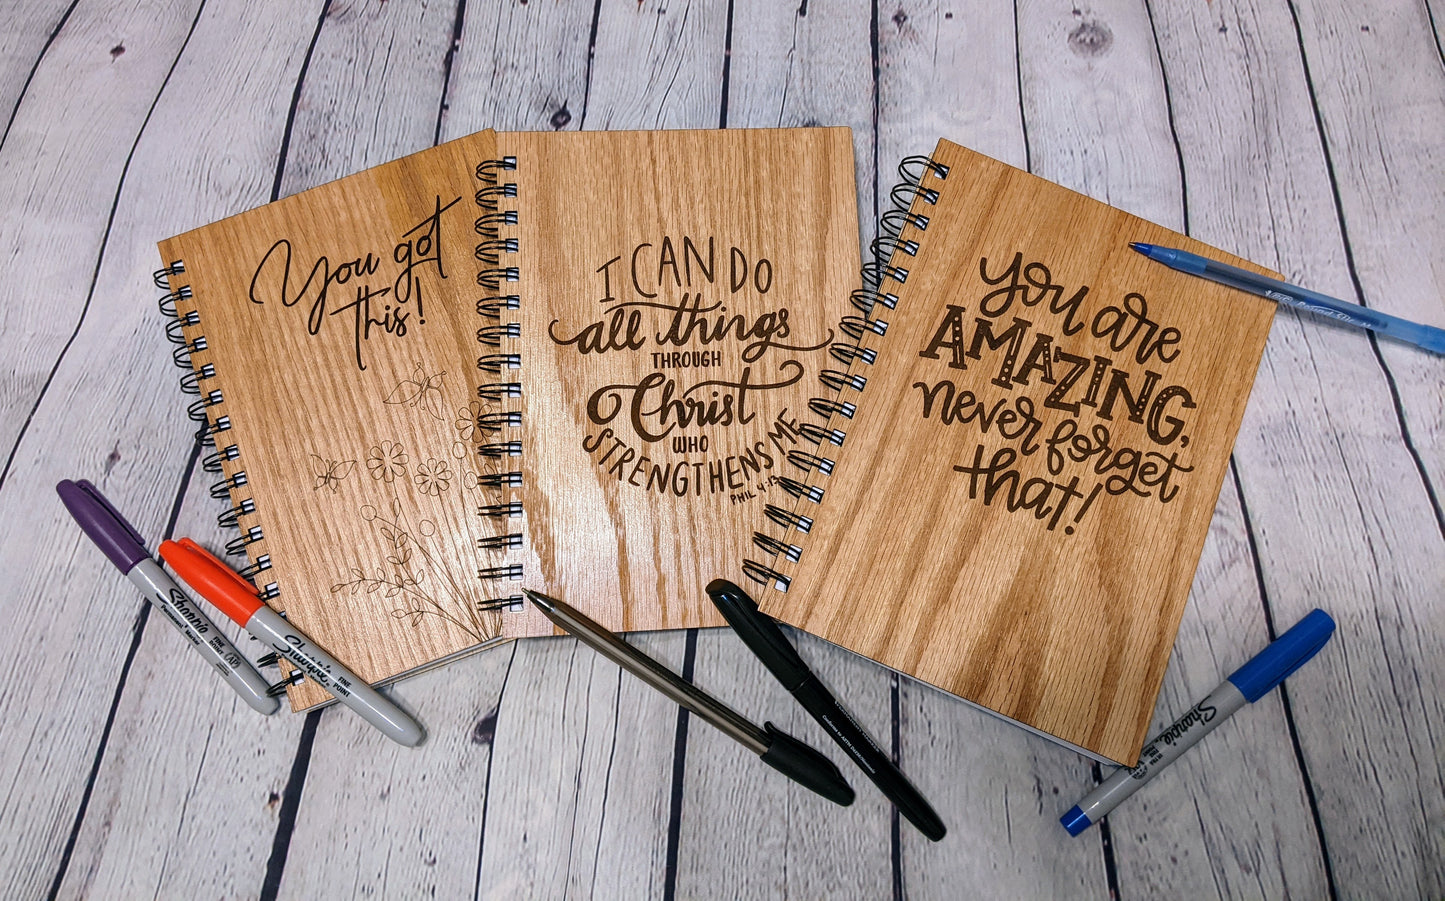 You got
this!
I CAN DO
all things
THROUGH
Christ
WHO
STRENGTHENS ME
PHIL 4:13
you are
AMAZING,
never forget
that!
Sharpie
Permanent Marker
FINE
POINT
Sharpie
FINE
POINT
Sharpie